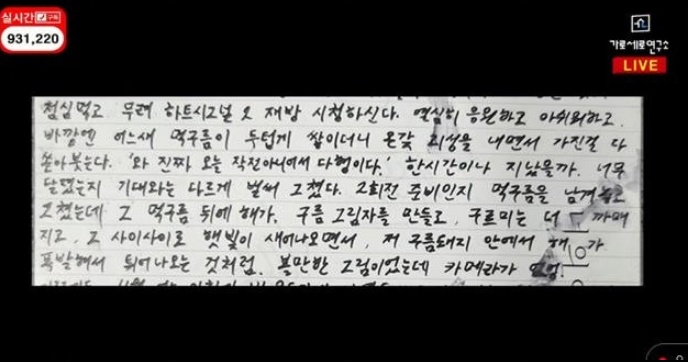 실시간 구독
931,220
가로세로연구소
LIVE
점심먹고 무려 하트시그널 2 재방 시청하신다. 열심히 응원하고 아쉬워하고.
바깥엔 어느새 먹구름이 두텁게 쌓이더니 온갖 괴성을 내면서 가진걸 다
쏟아붓는다. '와 진짜 오늘 작전아니어서 다행이다.' 한시간이나 지났을까. 너무
달렸는지 기대와는 다르게 벌써 그쳤다. 2회전 준비인지 먹구름을 남겨놓고
그쳤는데 그 먹구름 뒤에 해가. 구름 그림자를 만들고, 구르미는 더 까매
지고, 그 사이사이로 햇빛이 새어나오면서, 저 구름돼지 안에서 해가
폭발해서 튀어나오는 것처럼. 볼만한 그림이었는데 카메라가